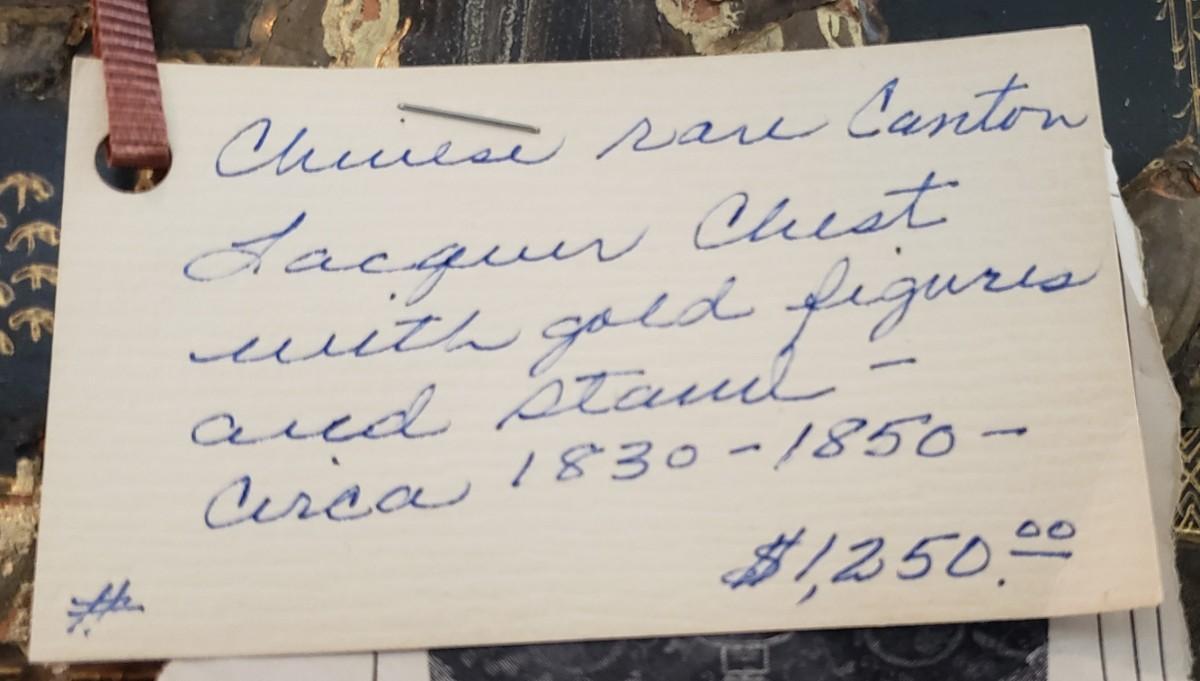 Chinese rare Canton
Lacquer Chest
with gold figures
and stand -
Circa 1830-1850-
$1,250.00